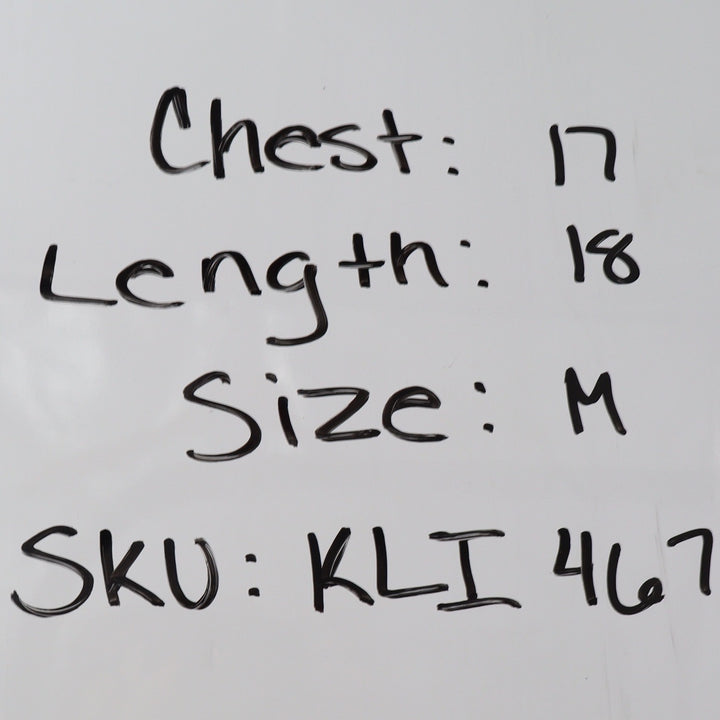 Chest: 17
Length: 18
Size: M
SKU: KLI 467